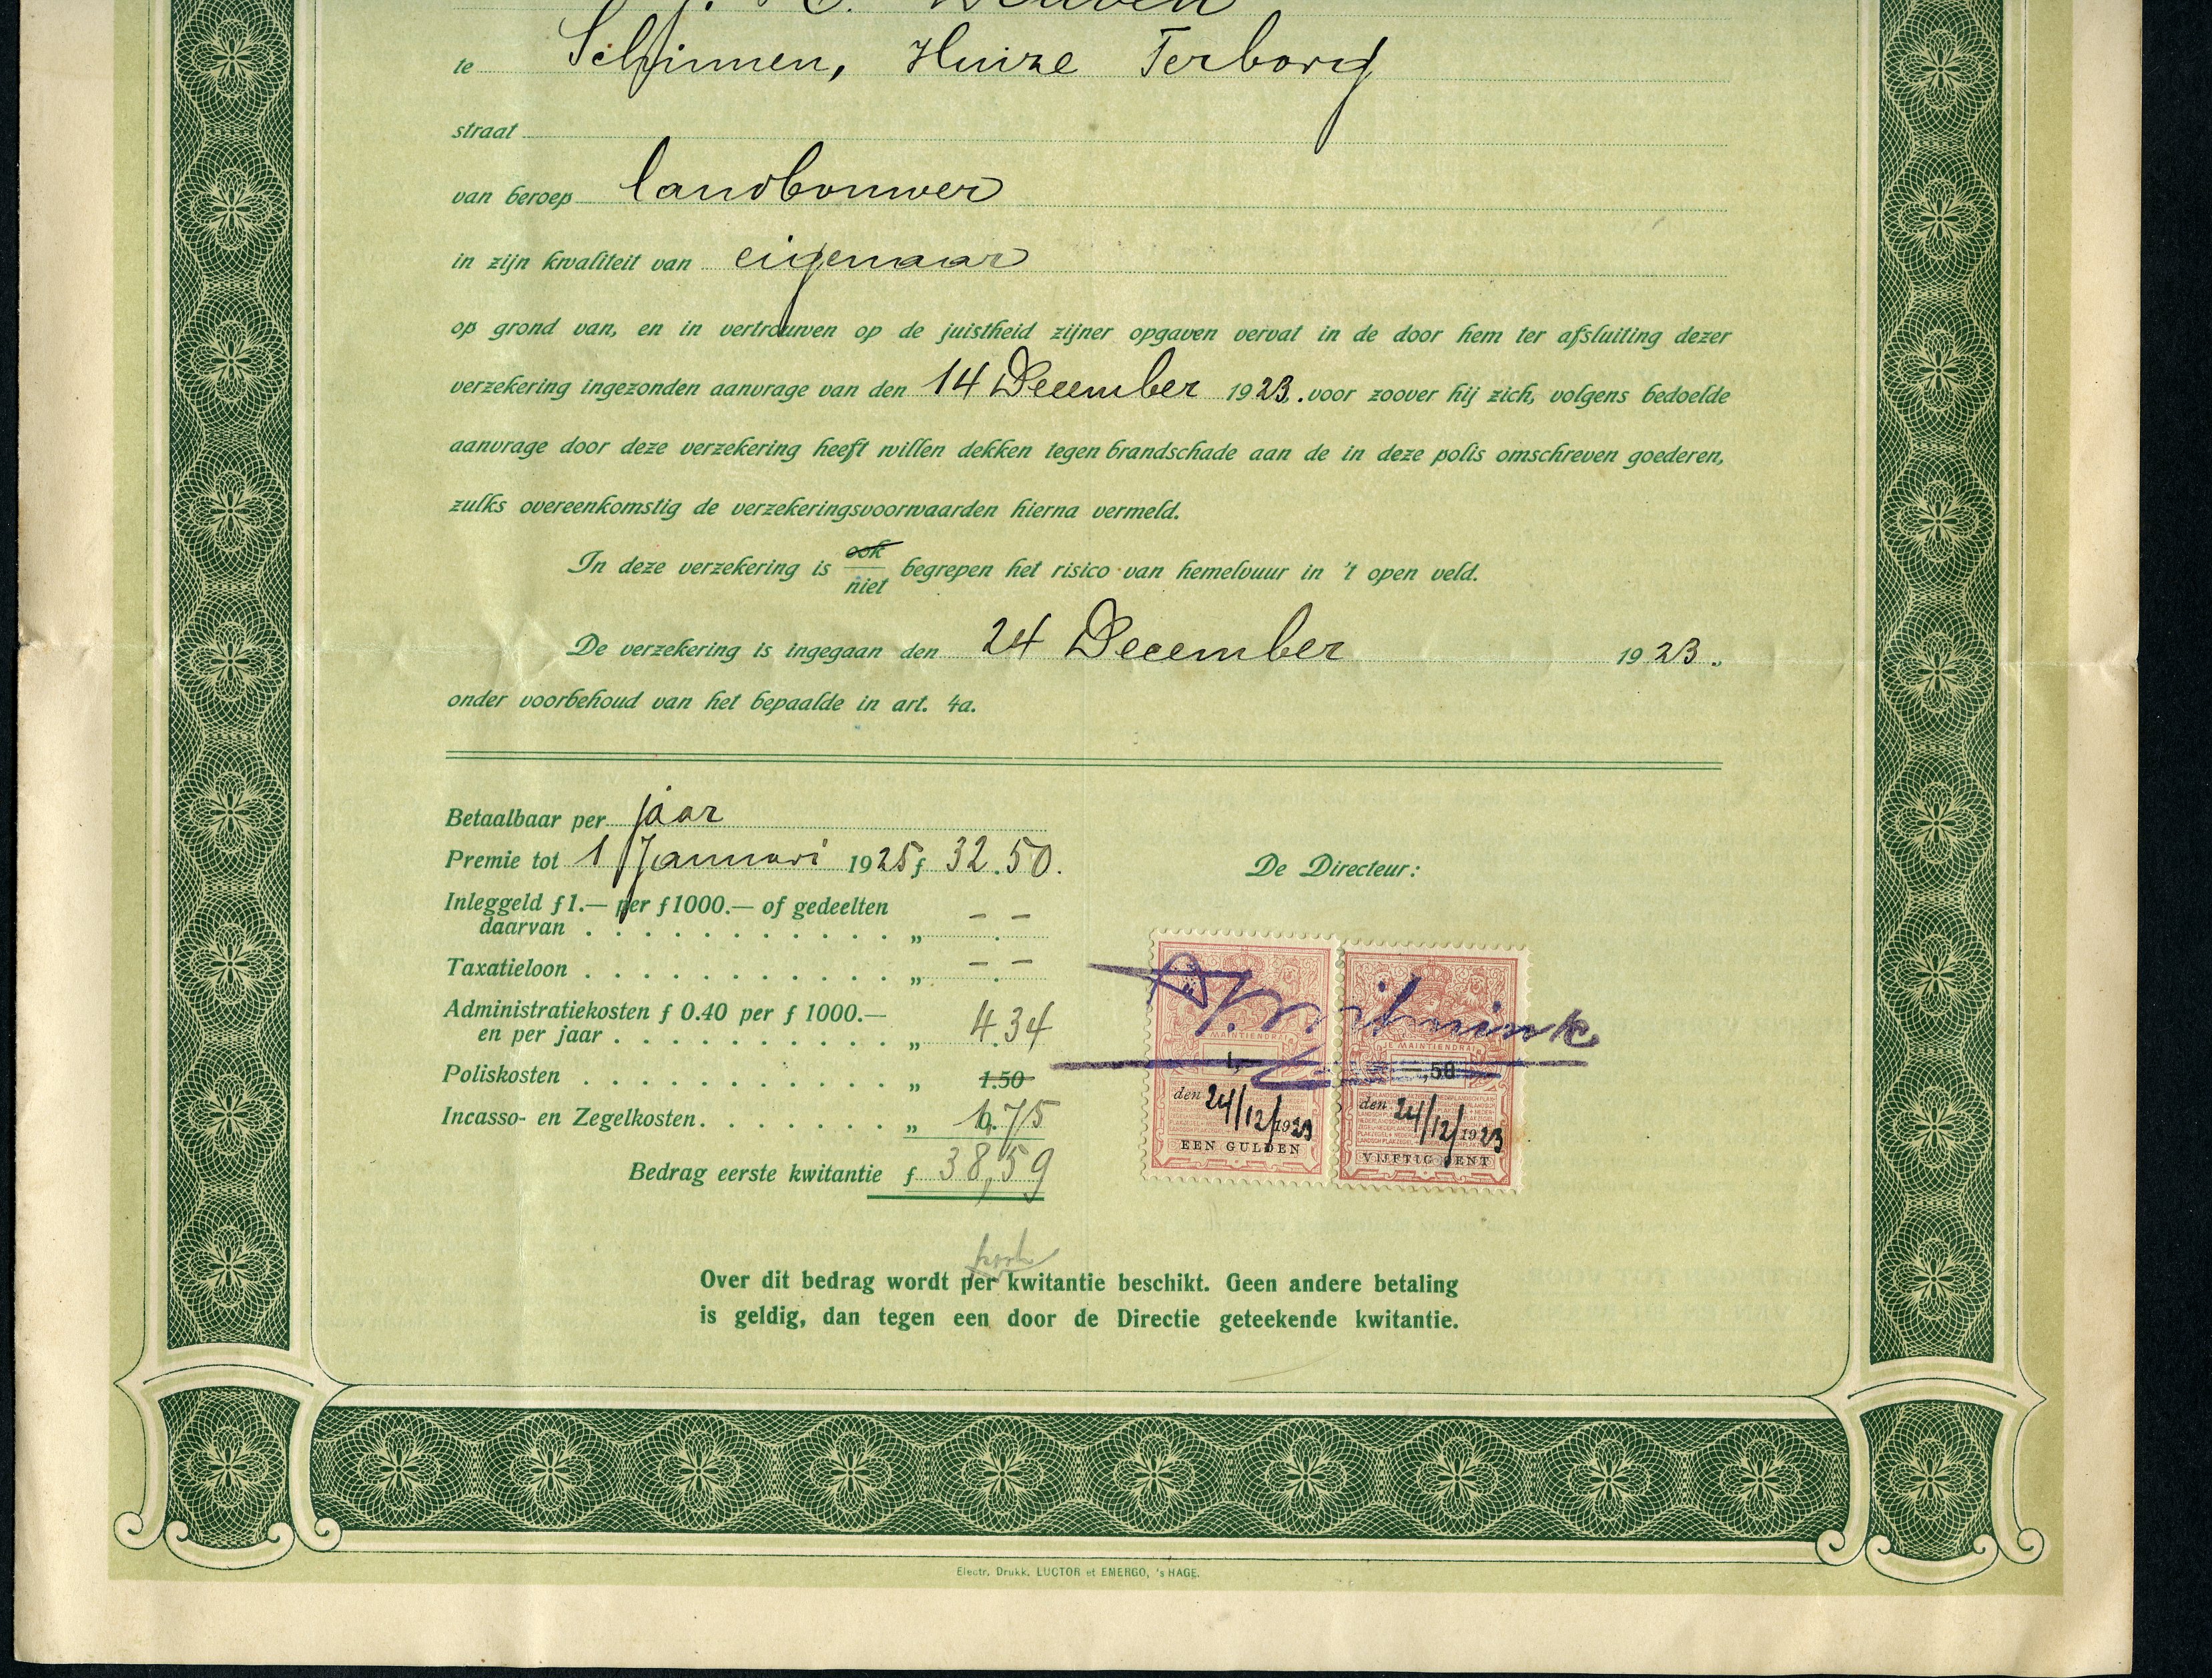 te Schinnen, Huize Terborg
straat
van beroep landbouwer
in zijn kwaliteit van eigenaar
op grond van, en in vertrouwen op de juistheid zijner opgaven vervat in de door hem ter afsluiting dezer
verzekering ingezonden aanvrage van den 14 December 1923. voor zoover hij zich, volgens bedoelde
aanvrage door deze verzekering heeft willen dekken tegen brandschade aan de in deze polis omschreven goederen,
zulks overeenkomstig de verzekeringsvoorwaarden hierna vermeld.
In deze verzekering is ook niet begrepen het risico van hemelvuur in 't open veld.
De verzekering is ingegaan den 24 December 1923.
onder voorbehoud van het bepaalde in art. 4a.
Betaalbaar per jaar
Premie tot 1 Januari 1925 f 32.50.
Inleggeld f 1.— per f 1000.— of gedeelten
daarvan . . . . . . . . . . . . „ -.-
Taxatieloon . . . . . . . . . . . . „ -.-
Administratiekosten f 0.40 per f 1000.—
en per jaar . . . . . . . . . . . „ 4.34
Poliskosten . . . . . . . . . . . . „ 1.50
Incasso- en Zegelkosten. . . . . . . . „ 1.75
Bedrag eerste kwitantie f 38,59
De Directeur:
JE MAINTIENDRAI
JE MAINTIENDRAI
1,—
,50
den 24/12/1923
den 24/12/1923
EEN GULDEN
VIJFTIG CENT
Over dit bedrag wordt per kwitantie beschikt. Geen andere betaling
is geldig, dan tegen een door de Directie geteekende kwitantie.
Electr. Drukk. LUCTOR et EMERGO, 's HAGE.